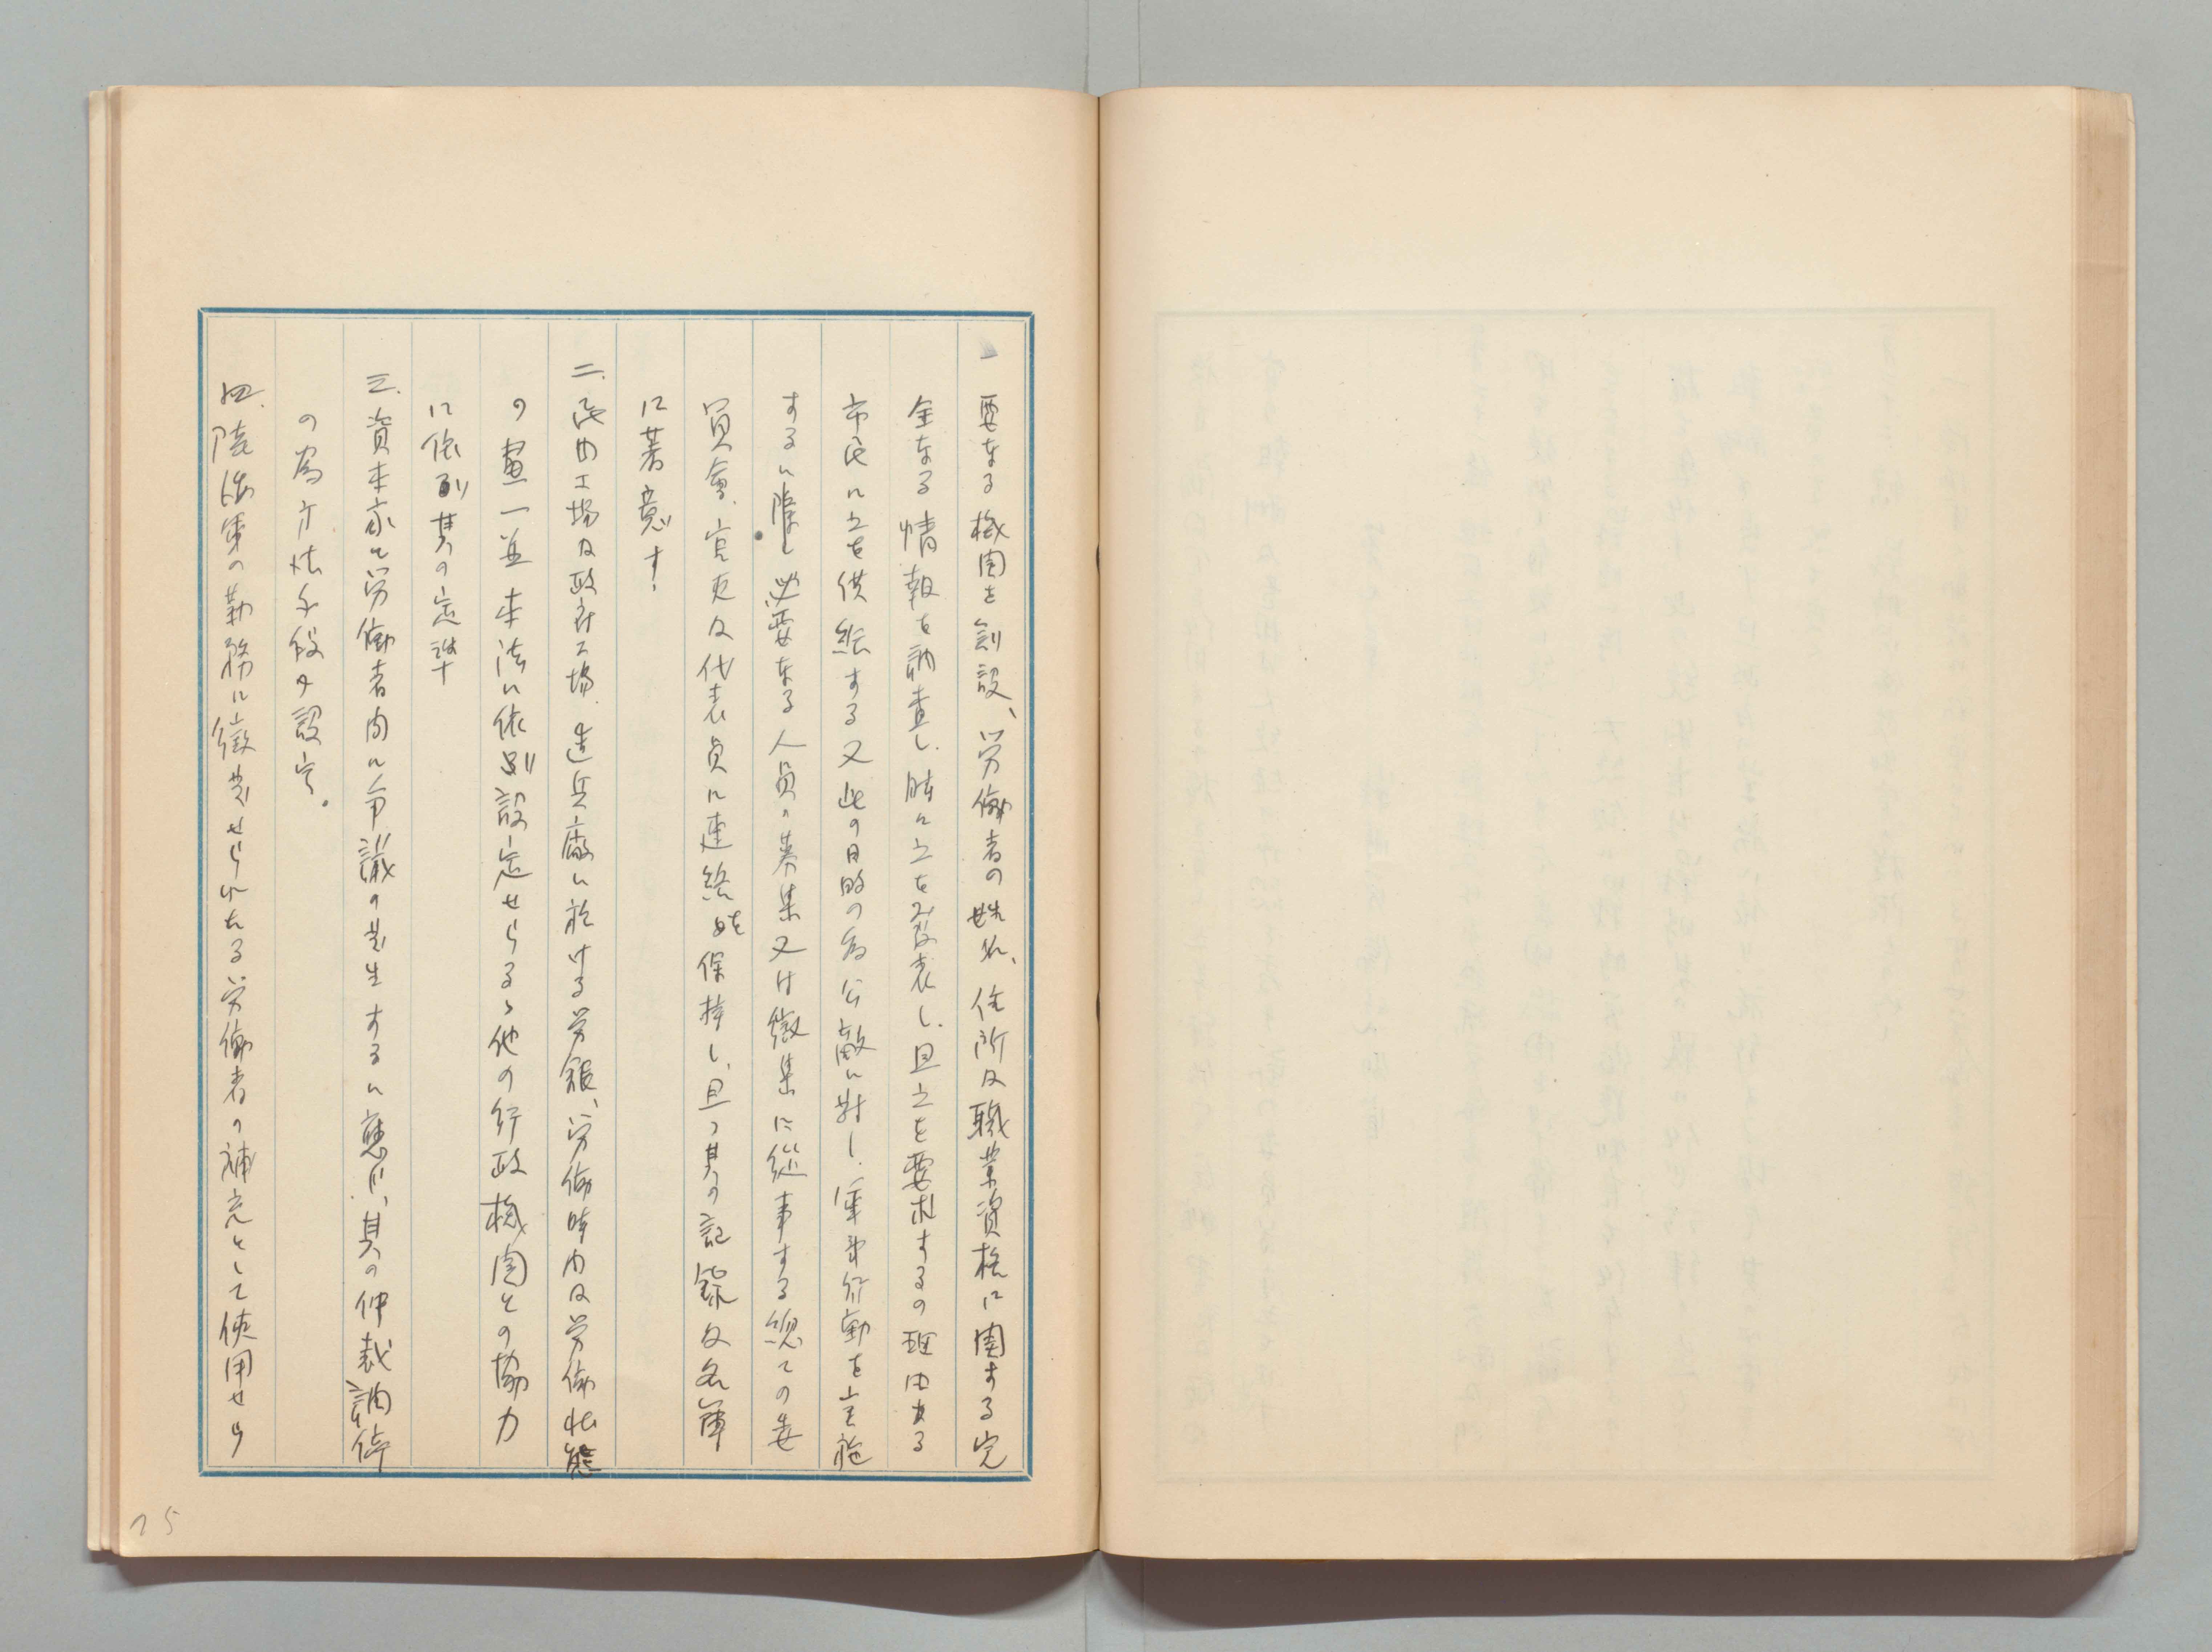 要なる機関を創設、労働者の姓名、住所及職業資格に関する完
全なる情報を調査し、時に之を発表し、且之を要求するの理由ある
市民に之を供給する又此の目的の為公敵に対し、軍事行動を実施
するに際し必要なる人員の募集又は徴集に従事する総ての委
員会、官吏及代表員に連絡を保持し、且つ其の記録及名簿
に著意す、
二、民由工場及政府工場、造兵廠に於ける労銀、労働時内及労働状態
の画一並本法に依り設定せらるゝ他の行政機関との協力
に依り其の定準
三、資本家と労働者内に争議の発生するに応じ、其の仲裁調停
の為方法手段の設定。
四、陸海軍の勤務に徴発せられたる労働者の補充として使用せら
75